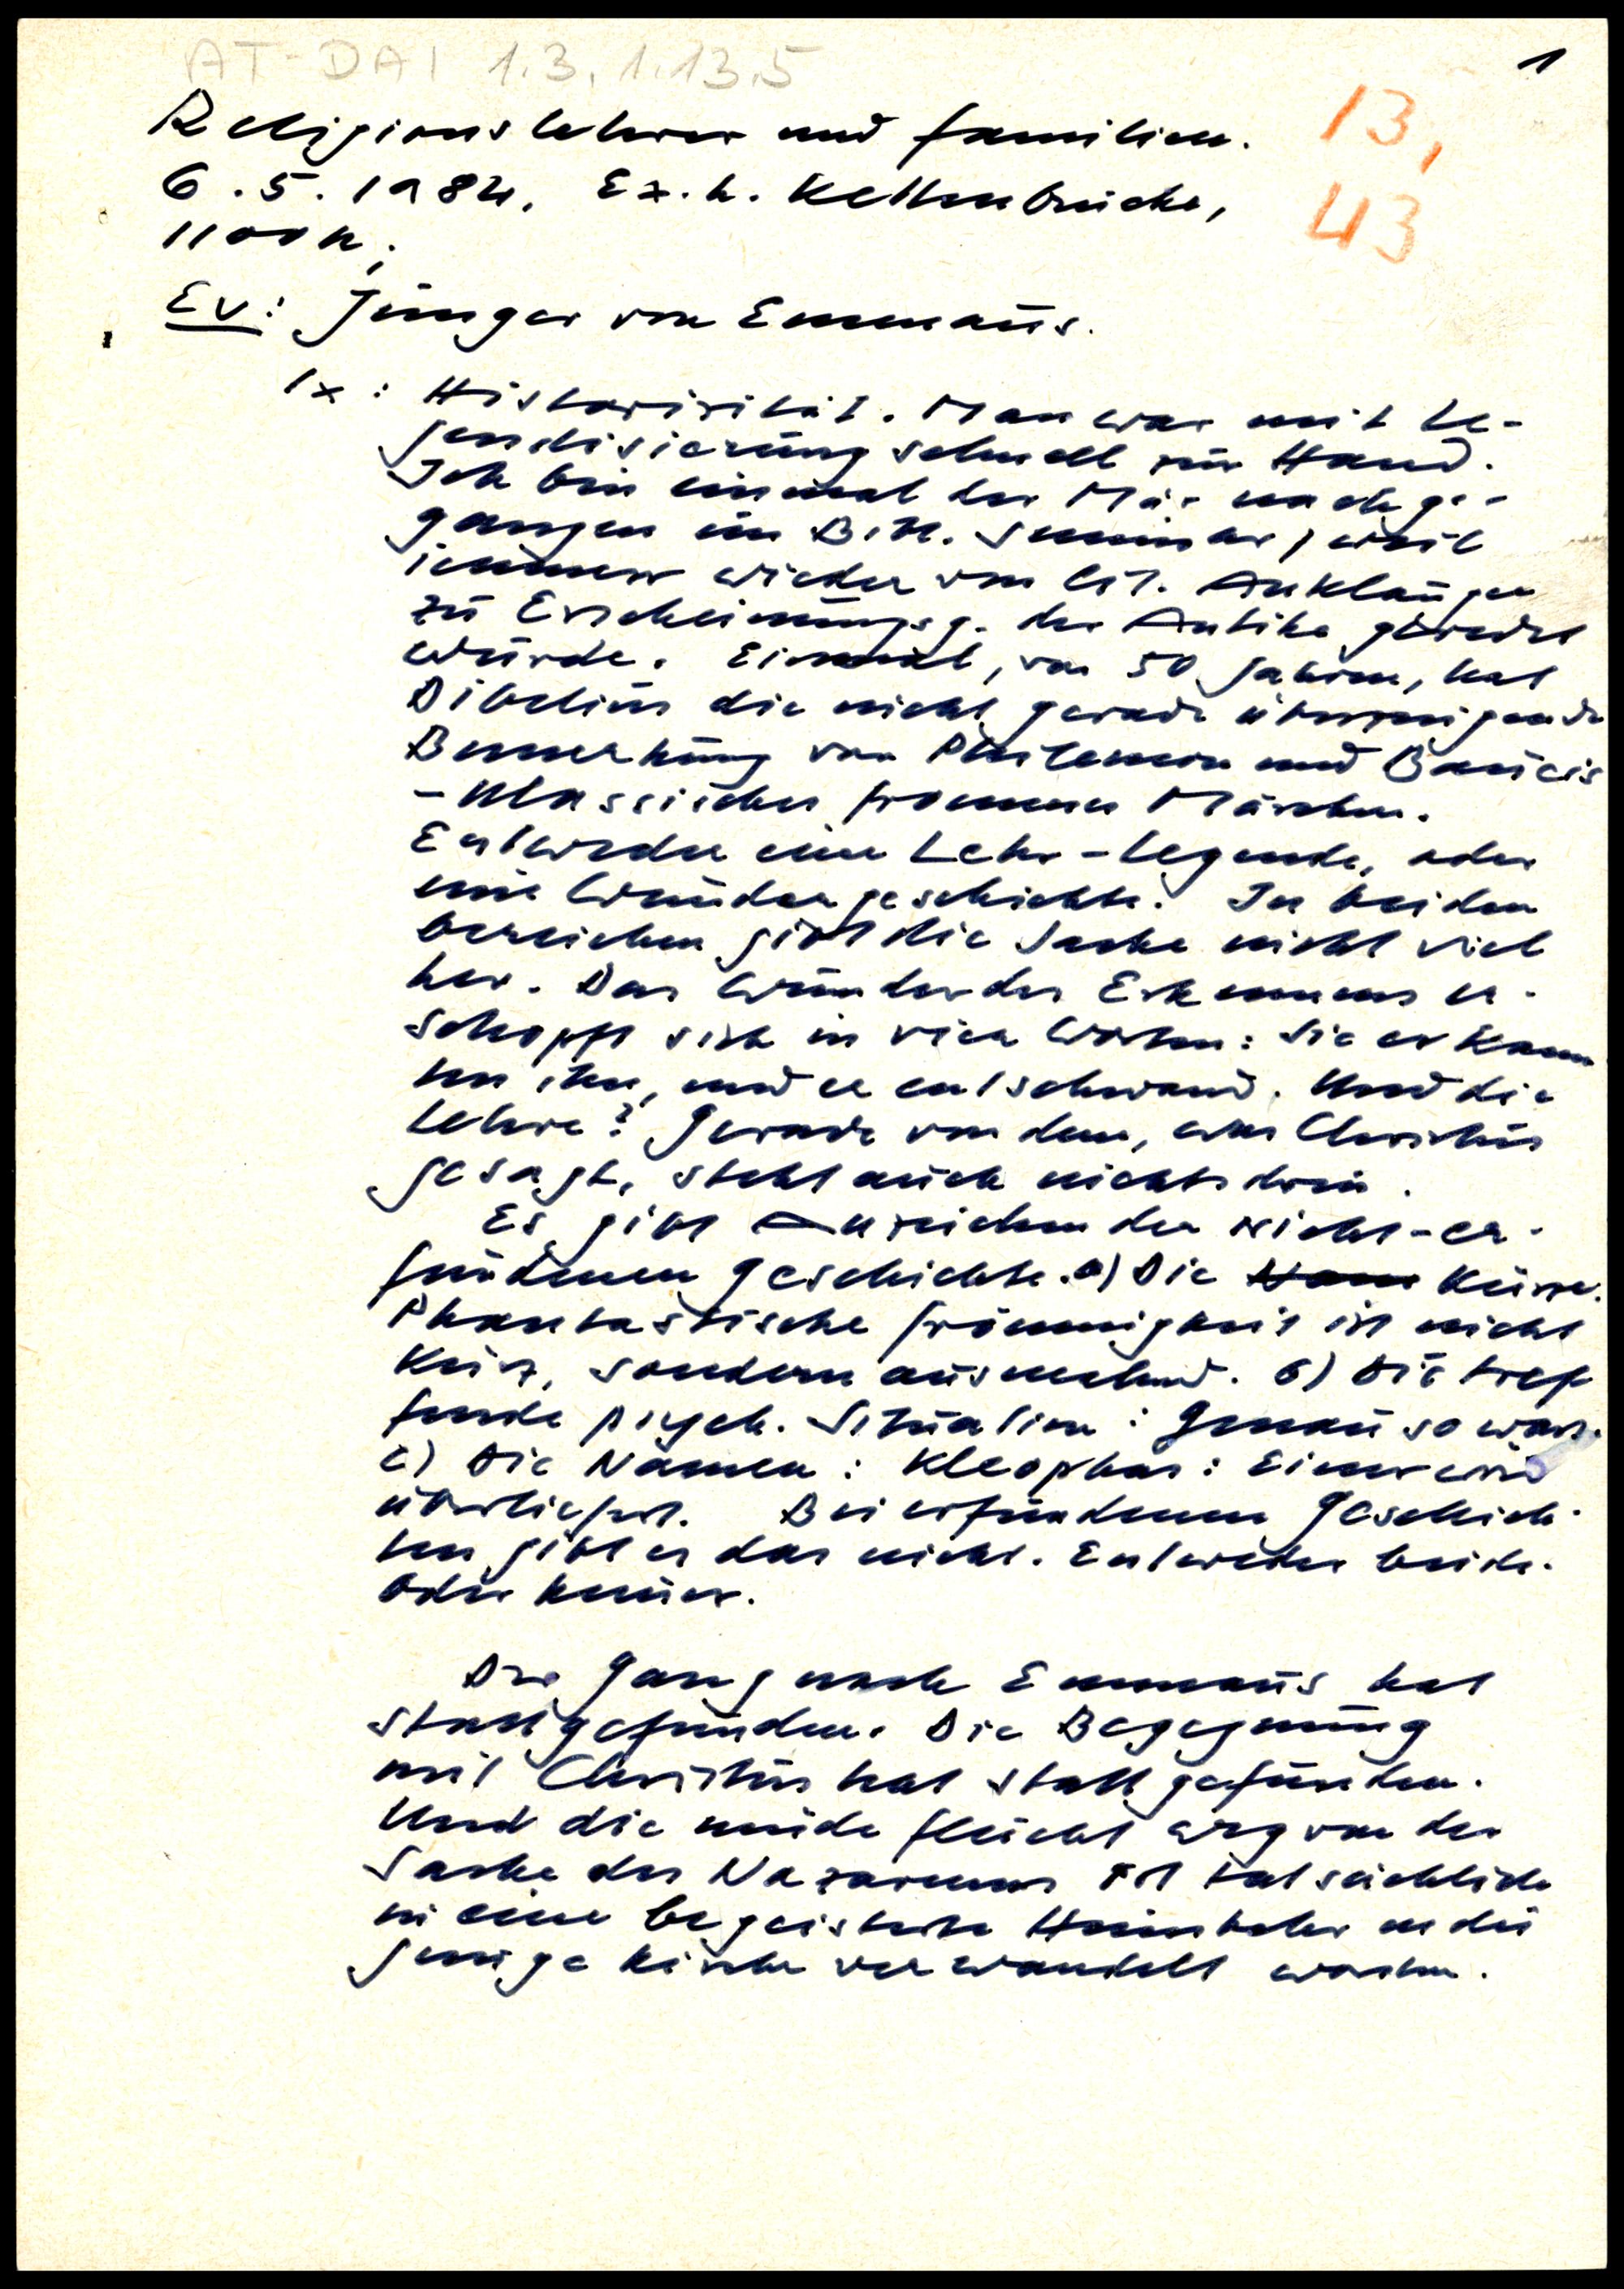 AT-DAI 1.3.1.13.5
1
13,
43
Religionslehrer und Familien.
6.5.1984, Ex.h. Kettenbrücke,
1100h;
Ev: Jünger von Emmaus.
Ix: Historizität. Man war mit Le-
gendisierung schnell zur Hand.
Ich bin einmal der Mär nachge-
gangen im Bibl. Seminar, weil
immer wieder von lit. Anklängen
zu Erscheinungsg. der Antike geredet
wurde. Einmal, vor 50 Jahren, hat
Dibelius die nicht gerade überzeugende
Bemerkung von Philemon und Baucis
- klassisches frommes Märchen.
Entweder eine Lehr-Legende, oder
eine Wundergeschichte. In beiden
bereichen gibt die Sache nicht viel
her. Das Wunder des Erkennens er-
schöpft sich in vier Worten: Sie erkann
ten ihn, und er entschwand. Und die
Lehre? Gerade von dem, was Christus
gesagt, steht auch nichts drin.
Es gibt Anzeichen der nicht-er-
fundenen Geschichte. a) Die Kürze.
Phantastische Frömmigkeit ist nicht
kurz, sondern ausmalend. b) Die tref
fende psych. Situation: Genau so wars.
c) Die Namen: Kleophas: Einer wird
überliefert. Bei erfundenen Geschich-
ten gibt es das nicht. Entweder beide.
Oder keiner.
Der Gang nach Emmaus hat
stattgefunden. Die Begegnung
mit Christus hat stattgefunden.
Und die müde Flucht weg von der
Sache des Nazareners ist tatsächlich
in eine begeisterte Heimkehr in die
junge Kirche verwandelt worden.